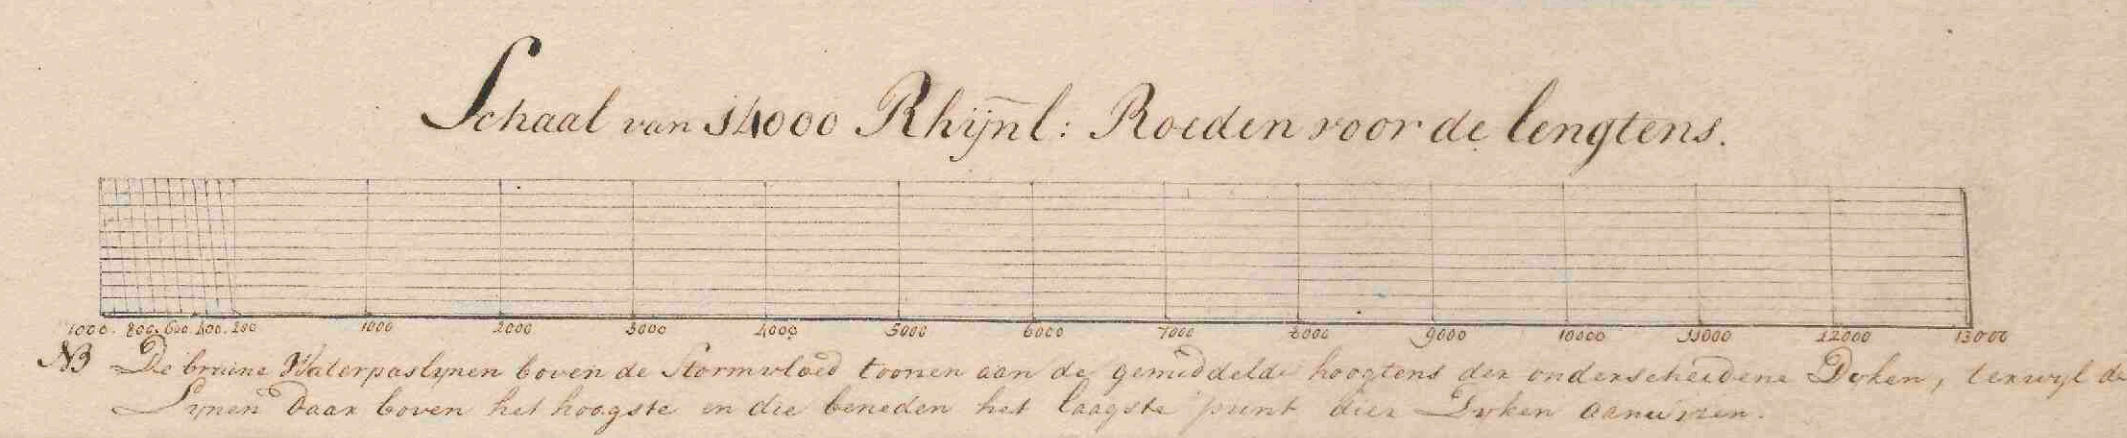 Schaal van 14000 Rhijnl: Roeden voor de lengtens.
1000. 800. 600. 400. 200 1000 2000 3000 4000 5000 6000 7000 8000 9000 10000 11000 12000 13000
NB De bruine Waterpaslynen boven de Stormvloed toonen aan de gemiddelde hoogtens der onderscheidene Dyken, terwyl de
Lynen daar boven het hoogste en die beneden het laagste punt dier Dyken aanwyzen.